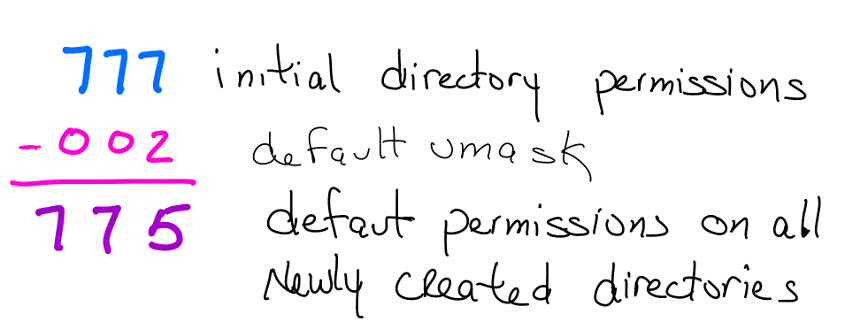 777 initial directory permissions
- 002 default umask
775 defaut permissions on all
Newly created directories